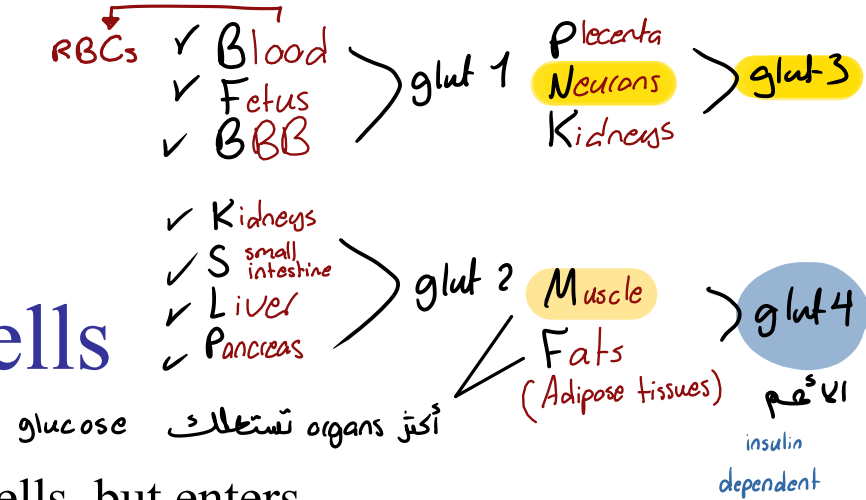 RBCs Blood
Fetus
BBB
glut 1
Plecenta
Neurons
Kidneys
glut 3
Kidneys
S small intestine
Liver
Pancreas
glut 2
Muscle
Fats
(Adipose tissues)
glut 4
الأهم
insulin
dependent
أكثر organs تستهلك glucose
ells
ells, but enters